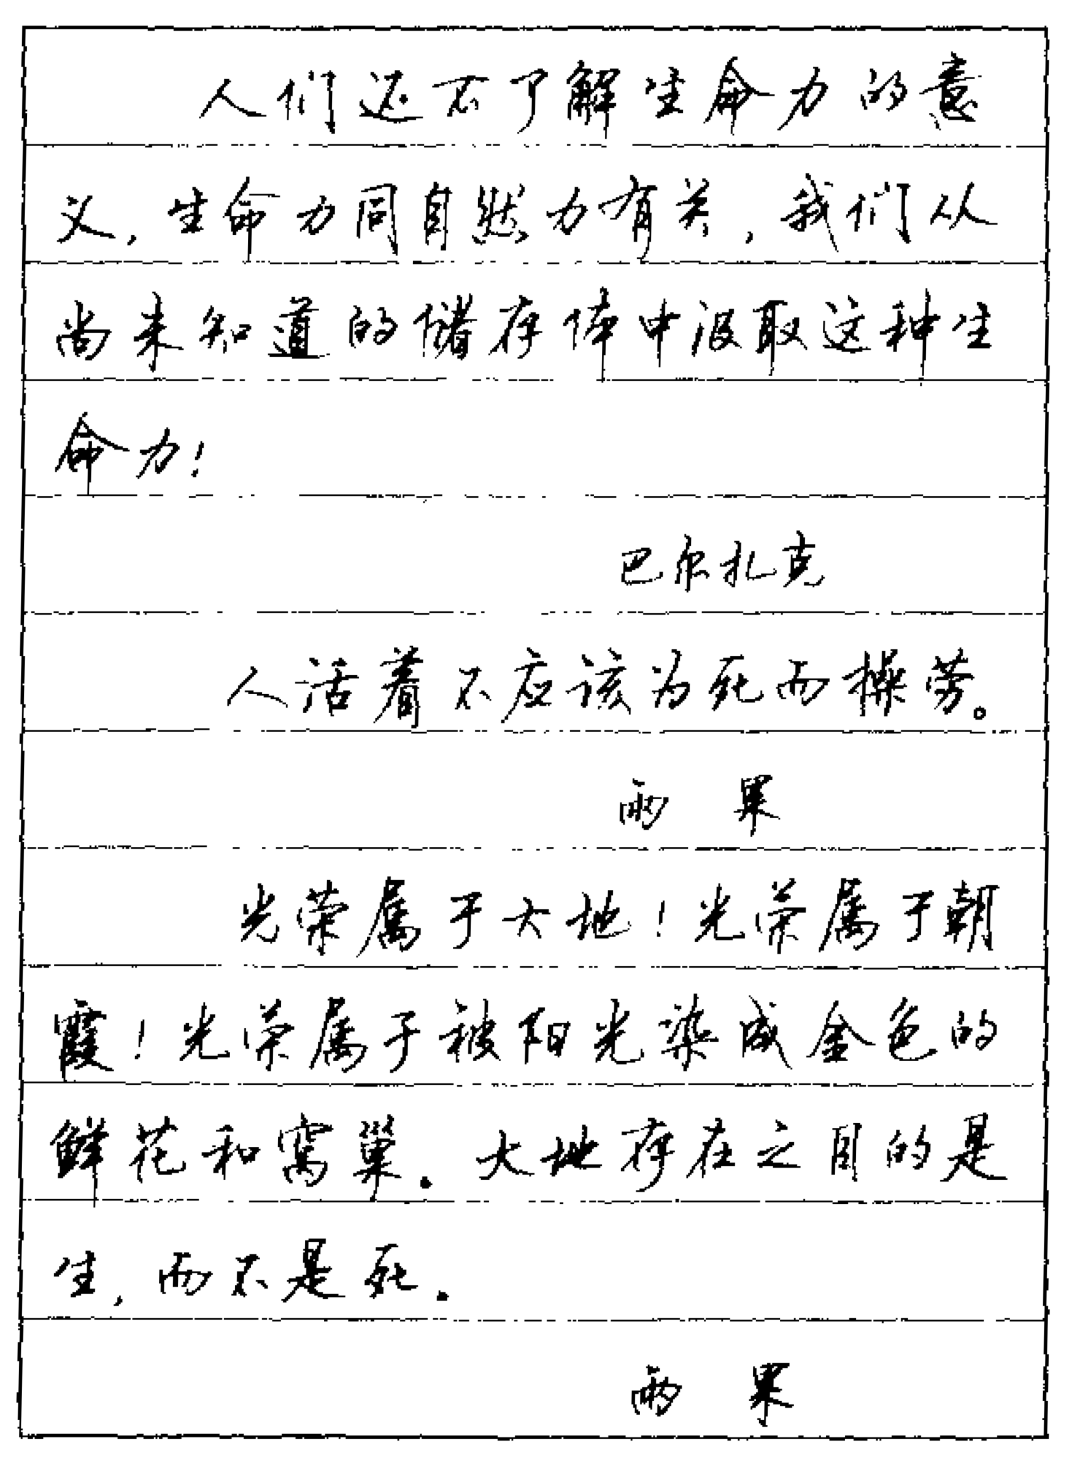 人们还不了解生命力的意
义，生命力同自然力有关，我们从
尚未知道的储存体中汲取这种生
命力！
巴尔扎克
人活着不应该为死而操劳。
雨 果
光荣属于大地！光荣属于朝
霞！光荣属于被阳光染成金色的
鲜花和窝巢．大地存在之目的是
生，而不是死．
雨 果